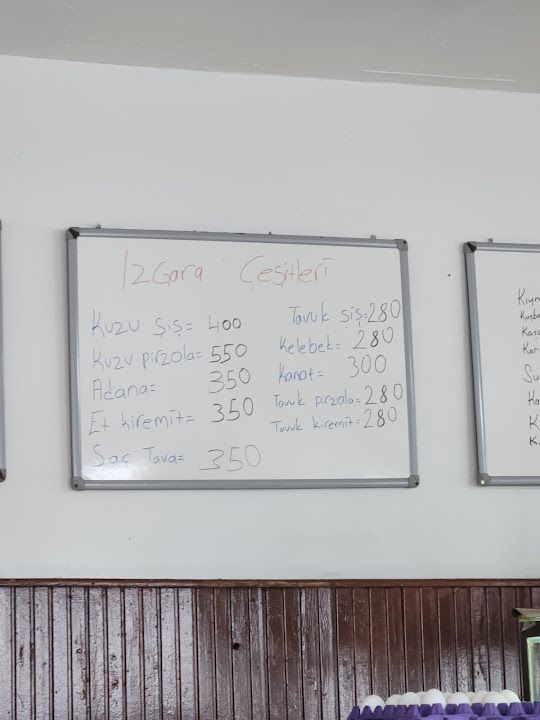 IZGara Çeşitleri
Kuzu şiş= 400
Kuzu pirzola= 550
Adana= 350
Et kiremit= 350
Sac Tava= 350
Tavuk şiş=280
Kelebek= 280
Kanat= 300
Tavuk pirzola= 280
Tavuk kiremit= 280